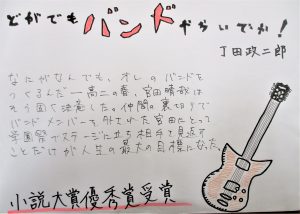 どがでもバンドやらいでか!
丁田政二郎
なにがなんでも、オレのバンドを
つくるんだ―高二の春、宮田晴哉は
そう固く決意した。仲間の裏切りで
バンドメンバーを外された宮田にとって
学園祭でステージに立ち相手を見返す
ことだけが人生の最大の目標になった。
小説大賞優秀賞受賞